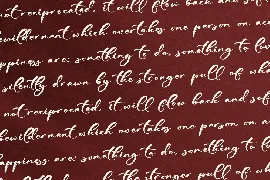 not reciprocated, it will flow back and sof
bewilderment, which overtakes one person on ac
appiness are: something to do, something to lov
silently drawn by the stronger pull of wha
not reciprocated, it will flow back and sof
bewilderment, which overtakes one person on a
appiness are: something to do, something to l
silently drawn by the stronger pull of